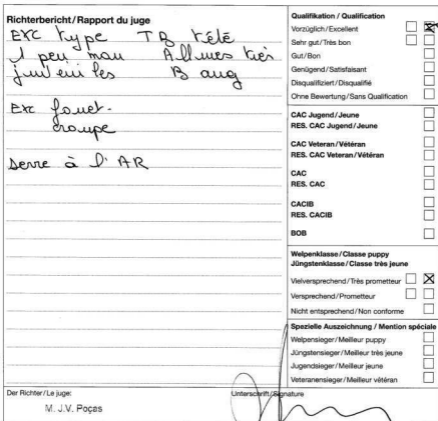 Richterbericht / Rapport du juge
EXC type TB tété
1 peu mou Allures très
juvéniles B aug
Exc fouet-
croupe
serre à l'AR
Qualifikation / Qualification
Vorzüglich/Excellent
Sehr gut/Très bon
Gut/Bon
Genügend/Satisfaisant
Disqualifiziert/Disqualifié
Ohne Bewertung/Sans Qualification
CAC Jugend/Jeune
RES. CAC Jugend/Jeune
CAC Veteran/Vétéran
RES. CAC Veteran/Vétéran
CAC
RES. CAC
CACIB
RES. CACIB
BOB
Welpenklasse/Classe puppy
Jüngstenklasse/Classe très jeune
Vielversprechend/Très prometteur
Versprechend/Prometteur
Nicht entsprechend/Non conforme
Spezielle Auszeichnung / Mention spéciale
Welpensieger/Meilleur puppy
Jüngstensieger/Meilleur très jeune
Jugendsieger/Meilleur jeune
Veteranensieger/Meilleur vétéran
Der Richter/Le juge:
Unterschrift/Signature
M. J.V. Poças